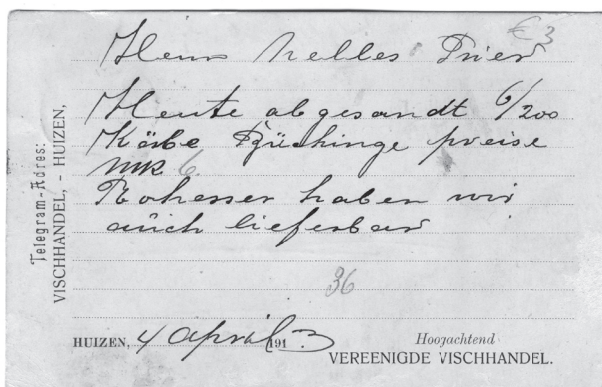 € 3
Herrn Nelles Trier
Heute abgesandt 6/200
Körbe Bückinge preise
mk 6.
Rohesser haben wir
auch lieferbar
36
Telegram-Adres:
VISCHHANDEL, - HUIZEN,
HUIZEN, 4 April 1913
Hoogachtend
VEREENIGDE VISCHHANDEL.